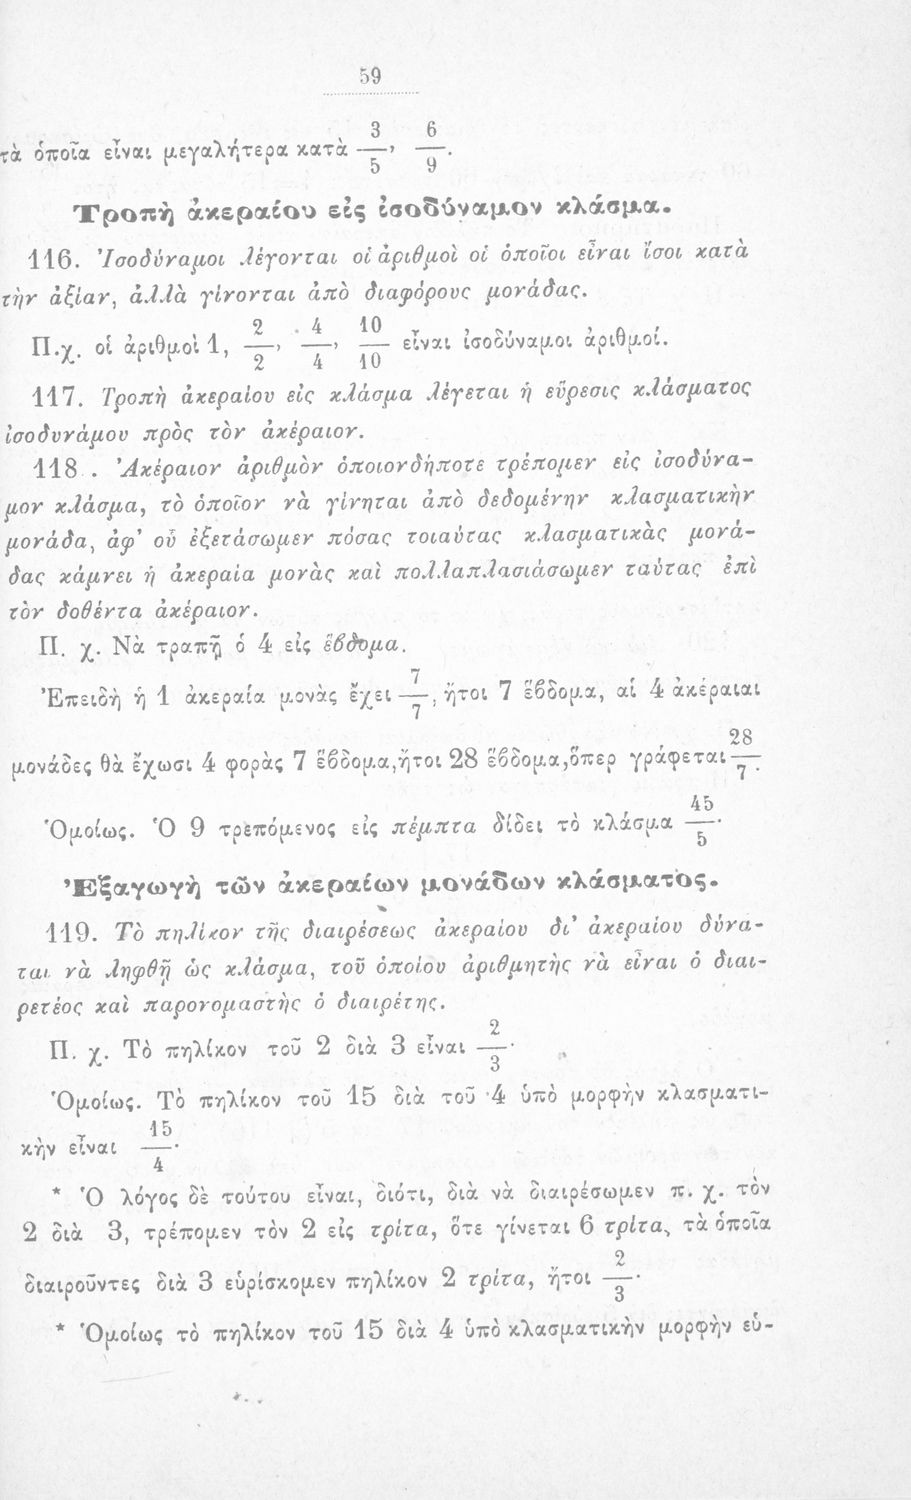 59
τὰ ὁποῖα εἶναι μεγαλήτερα κατὰ 3/5, 6/9.
Τροπὴ ἀκεραίου εἰς ἰσοδύναμον κλάσμα.
116. Ἰσοδύναμοι λέγονται οἱ ἀριθμοὶ οἱ ὁποῖοι εἶναι ἴσοι κατὰ
τὴν ἀξίαν, ἀλλὰ γίνονται ἀπὸ διαφόρους μονάδας.
Π.χ. οἱ ἀριθμοὶ 1, 2/2, 4/4, 10/10 εἶναι ἰσοδύναμοι ἀριθμοί.
117. Τροπὴ ἀκεραίου εἰς κλάσμα λέγεται ἡ εὕρεσις κλάσματος
ἰσοδυνάμου πρὸς τὸν ἀκέραιον.
118. Ἀκέραιον ἀριθμὸν ὁποιονδήποτε τρέπομεν εἰς ἰσοδύνα-
μον κλάσμα, τὸ ὁποῖον νὰ γίνηται ἀπὸ δεδομένην κλασματικὴν
μονάδα, ἀφ' οὗ ἐξετάσωμεν πόσας τοιαύτας κλασματικὰς μονά-
δας κάμνει ἡ ἀκεραία μονὰς καὶ πολλαπλασιάσωμεν ταύτας ἐπὶ
τὸν δοθέντα ἀκέραιον.
Π. χ. Νὰ τραπῇ ὁ 4 εἰς ἕβδομα.
Ἐπειδὴ ἡ 1 ἀκεραία μονὰς ἔχει 7/7, ἤτοι 7 ἕβδομα, αἱ 4 ἀκέραιαι
μονάδες θὰ ἔχωσι 4 φορὰς 7 ἕβδομα, ἤτοι 28 ἕβδομα, ὅπερ γράφεται 28/7.
Ὁμοίως. Ὁ 9 τρεπόμενος εἰς πέμπτα δίδει τὸ κλάσμα 45/5·
Ἐξαγωγὴ τῶν ἀκεραίων μονάδων κλάσματος.
119. Τὸ πηλίκον τῆς διαιρέσεως ἀκεραίου δι' ἀκεραίου δύνα-
ται νὰ ληφθῇ ὡς κλάσμα, τοῦ ὁποίου ἀριθμητὴς νὰ εἶναι ὁ διαι-
ρετέος καὶ παρονομαστὴς ὁ διαιρέτης.
Π. χ. Τὸ πηλίκον τοῦ 2 διὰ 3 εἶναι 2/3·
Ὁμοίως. Τὸ πηλίκον τοῦ 15 διὰ τοῦ 4 ὑπὸ μορφὴν κλασματι-
κὴν εἶναι 15/4·
* Ὁ λόγος δὲ τούτου εἶναι, διότι, διὰ νὰ διαιρέσωμεν π. χ. τὸν
2 διὰ 3, τρέπομεν τὸν 2 εἰς τρίτα, ὅτε γίνεται 6 τρίτα, τὰ ὁποῖα
διαιροῦντες διὰ 3 εὑρίσκομεν πηλίκον 2 τρίτα, ἤτοι 2/3·
* Ὁμοίως τὸ πηλίκον τοῦ 15 διὰ 4 ὑπὸ κλασματικὴν μορφὴν εὑ-